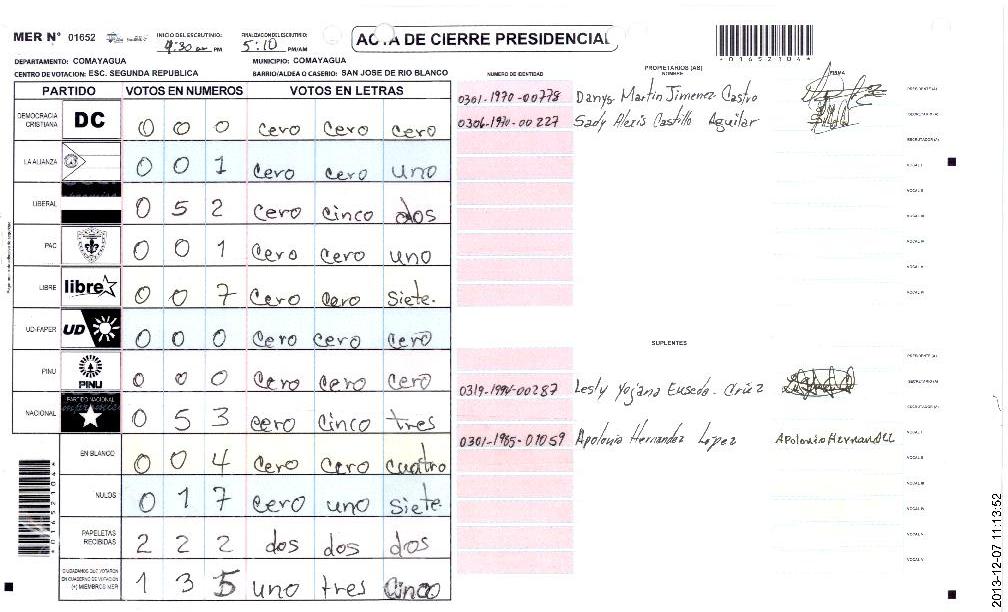 MER Nº 01652
INICIO DEL ESCRUTINIO: 4:30 PM
FINALIZACION DEL ESCRUTINIO: 5:10 PM/AM
ACTA DE CIERRE PRESIDENCIAL
*01652104*
DEPARTAMENTO: COMAYAGUA MUNICIPIO: COMAYAGUA
CENTRO DE VOTACION: ESC. SEGUNDA REPUBLICA BARRIO/ALDEA O CASERIO: SAN JOSE DE RIO BLANCO
PARTIDO VOTOS EN NUMEROS VOTOS EN LETRAS
DEMOCRACIA CRISTIANA DC 0 0 0 cero cero cero
LA ALIANZA 0 0 1 cero cero uno
LIBERAL 0 5 2 cero cinco dos
PAC 0 0 1 cero cero uno
LIBRE libre 0 0 7 cero cero siete.
UD-FAPER UD 0 0 0 cero cero cero
PINU PINU 0 0 0 cero cero cero
NACIONAL PARTIDO NACIONAL 0 5 3 cero cinco tres
EN BLANCO 0 0 4 cero cero cuatro
NULOS 0 1 7 cero uno siete
PAPELETAS RECIBIDAS 2 2 2 dos dos dos
CIUDADANOS QUE VOTARON EN CUADERNO DE VOTACION (+) MIEMBROS MER 1 3 5 uno tres cinco
*01652104*
PROPIETARIOS (AS)
NUMERO DE IDENTIDAD NOMBRE FIRMA
0301-1970-00778 Danys Martin Jimenez Castro PRESIDENTE (A)
0306-1970-00227 Sady Alexis Castillo Aguilar SECRETARIO (A)
ESCRUTADOR (A)
VOCAL I
VOCAL II
VOCAL III
VOCAL IV
VOCAL V
VOCAL VI
SUPLENTES
PRESIDENTE (A)
0319-1994-00287 Lesly Yojana Eusedo. Cruz SECRETARIO (A)
ESCRUTADOR (A)
0301-1985-01059 Apolonio Hernandez Lopez VOCAL I
VOCAL II
VOCAL III
VOCAL IV
VOCAL V
2013-12-07 11:13:52